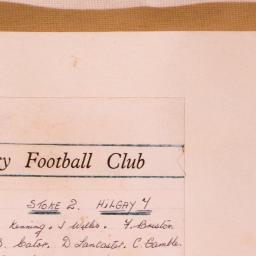 y Football Club
STOKE 2. HILGAY 4
Kenning. J Wells. F. Bruston
B. Eator. D Lancaster. C. Gamble.